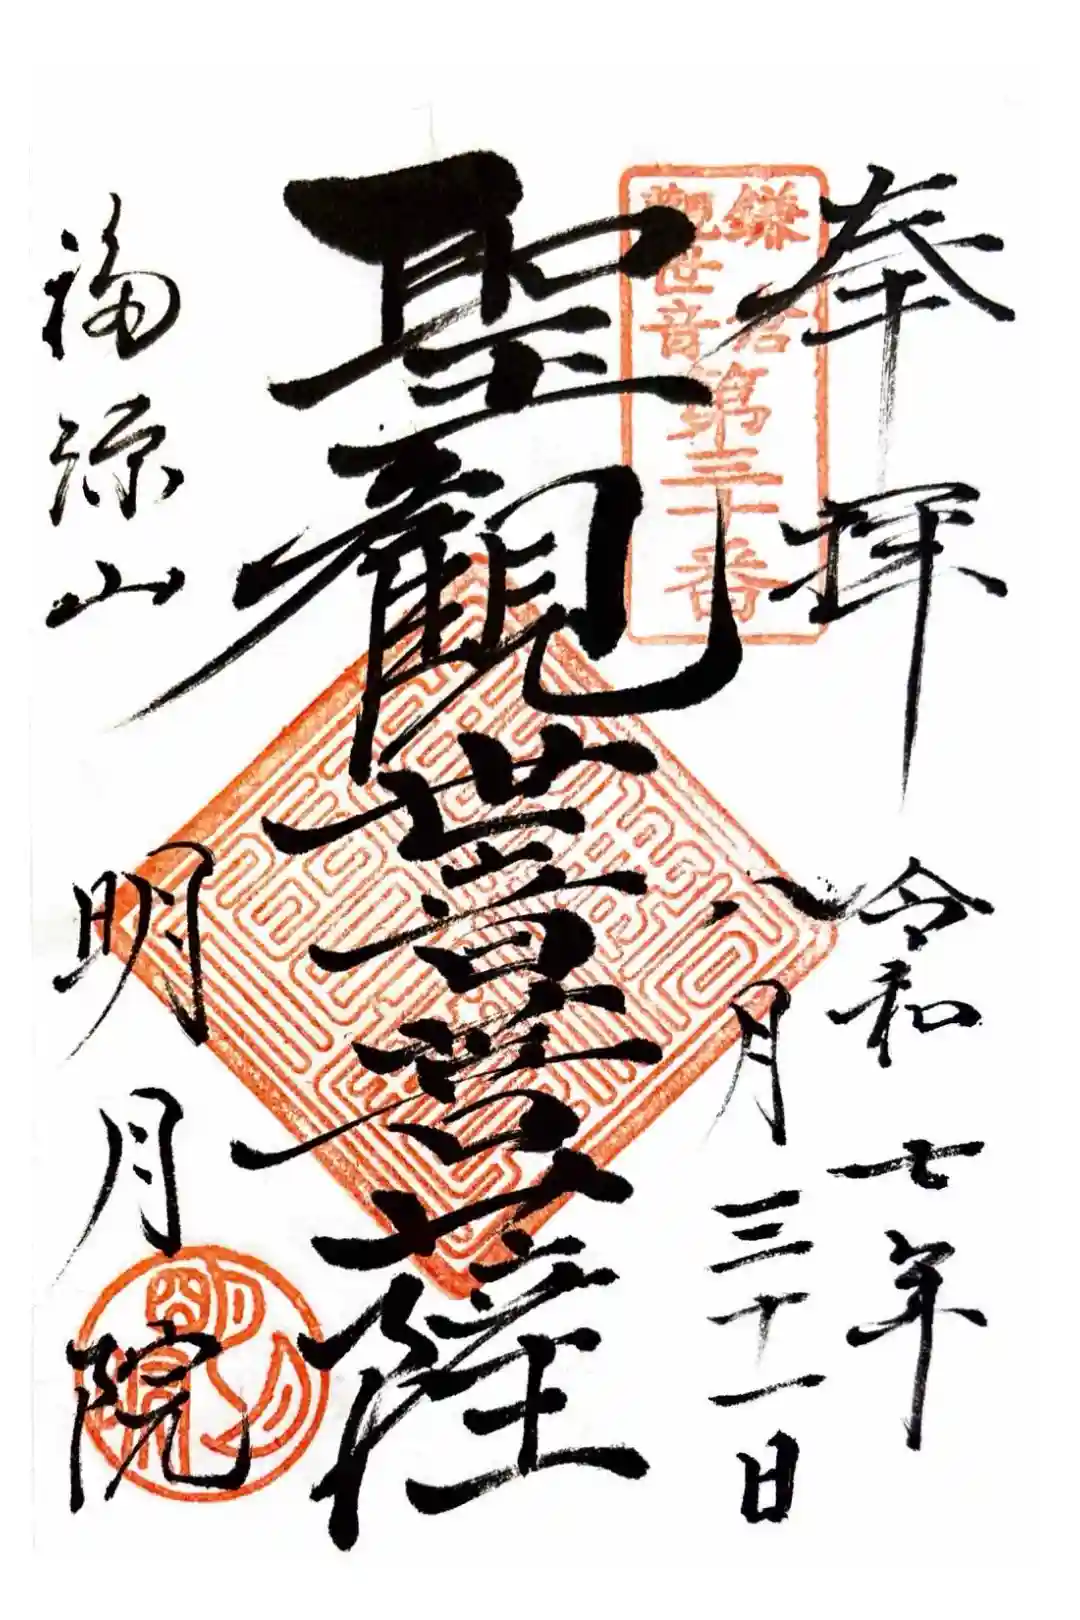 奉拝
令和七年
八月三十一日
鎌倉
觀世音
第三十番
聖觀世音菩薩
福源山
明月院
明月院